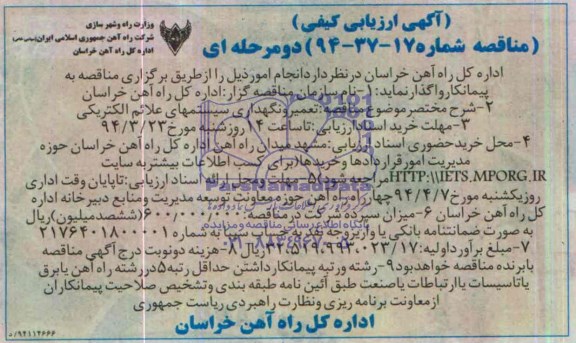 وزارت راه وشهر سازی
شرکت راه آهن جمهوری اسلامی ایران
اداره کل راه آهن خراسان
(آگهی ارزیابی کیفی)
(مناقصه شماره ۱۷-۳۷-۹۴) دومرحله ای
اداره کل راه آهن خراسان درنظردارد انجام امورذیل را ازطریق برگزاری مناقصه به
پیمانکارواگذارنماید: ۱-نام سازمان مناقصه گزار: اداره کل راه آهن خراسان
۲-شرح مختصرموضوع مناقصه: تعمیرونگهداری سیستمهای علائم الکتریکی
۳-مهلت خرید اسنادارزیابی: تاساعت ۱۴ روزشنبه مورخ ۹۴/۳/۲۳
۴-محل خریدحضوری اسناد ارزیابی: مشهدمیدان راه آهن اداره کل راه آهن خراسان حوزه
مدیریت امورقراردادها وخریدها(برای کسب اطلاعات بیشتر به سایت
HTTP:\\IETS.MPORG.IR مراجعه شود) ۵-مهلت ومحل ارائه اسناد ارزیابی: تاپایان وقت اداری
روزیکشنبه مورخ ۹۴/۴/۷ چهارراه راه آهن حوزه معاونت توسعه مدیریت ومنابع دبیرخانه اداره
کل راه آهن خراسان ۶-میزان سپرده شرکت درمناقصه: ۶۰۰/۰۰۰/۰۰۰ (ششصدمیلیون)ریال
به صورت ضمانتنامه بانکی یا واریزوجه نقد به حساب سیبا به شماره ۲۱۷۶۴۰۱۸۰۰۰۰۱
۷-مبلغ برآورداولیه: ریال ۸-هزینه دونوبت درج آگهی مناقصه
بابرنده مناقصه خواهدبود ۹-رشته ورتبه پیمانکار داشتن حداقل رتبه ۵ در رشته راه آهن یابرق
یاتاسیسات یاارتباطات یاصنعت طبق آئین نامه طبقه بندی وتشخیص صلاحیت پیمانکاران
ازمعاونت برنامه ریزی ونظارت راهبردی ریاست جمهوری
اداره کل راه آهن خراسان
ParsNamadData
پایگاه اطلاع رسانی مناقصه و مزایده